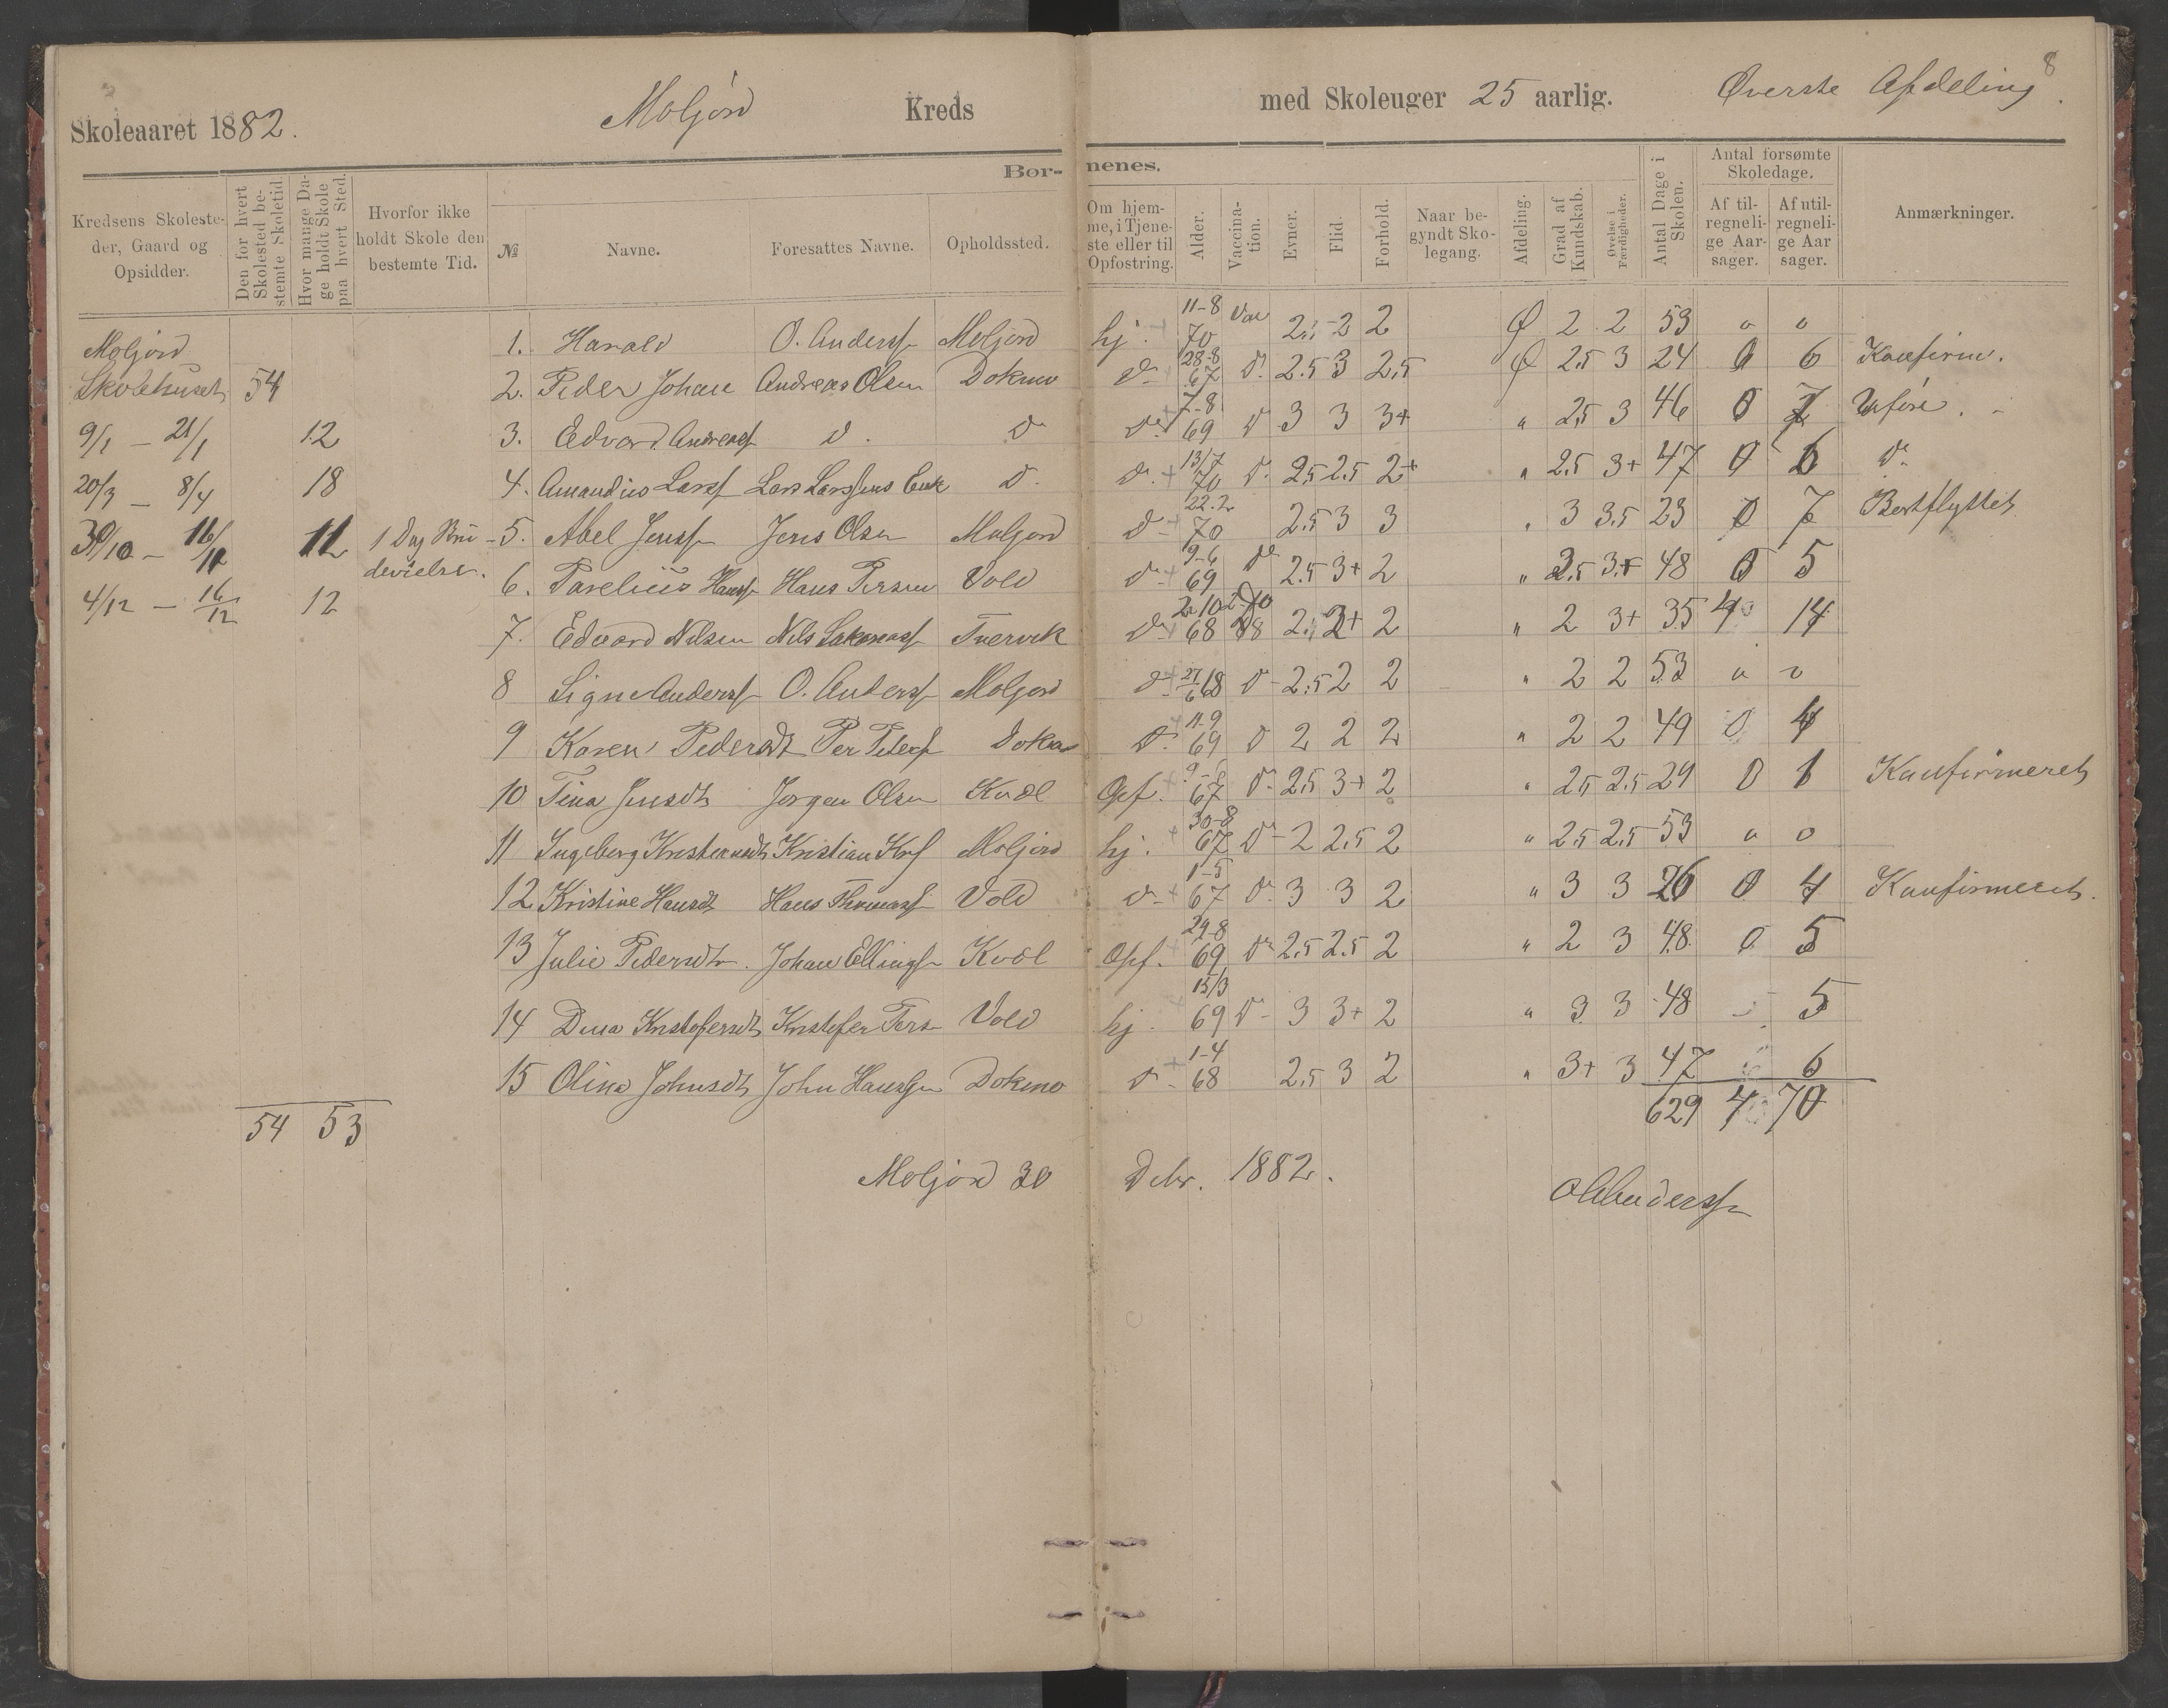 8
Skoleaaret 1882. Moljord Kreds med Skoleuger 25 aarlig. Øverste Afdeling.
Børnenes.
Kredsens Skolesteder, Gaard og Opsidder.
Den for hvert Skolested bestemte Skoletid.
Hvor mange Dage holdt Skole paa hvert Sted.
Hvorfor ikke holdt Skole den bestemte Tid.
№ Navne. Foresattes Navne. Opholdssted.
Om hjemme, i Tjeneste eller til Opfostring.
Alder. Vaccination. Evner. Flid. Forhold.
Naar begyndt Skolegang.
Afdeling. Grad af Kundskab. Øvelse i Færdigheder. Antal Dage i Skolen.
Antal forsømte Skoledage.
Af tilregnelige Aarsager. Af utilregnelige Aarsager.
Anmærkninger.
Moljord
Skolehuset 54
9/1 – 21/1 12
20/3 – 8/4 18
30/10 – 11
4/12 – 16/12 12
54 53
1 Dag
1. Harald O. Anderss Moljord hj. 11-8 70 Vac 2 2 Ø 2 2 53 0 0
2. Peder Johan Andreas Olsen Dokmo d 28-8 67 d. 2.5 3 2,5 Ø 2,5 3 24 0 6 Konfirm.
3. Edvard Andreass d. d d 7-8 69 d 3 3 3+ " 2,5 3 46 0 7
4. Amandius Larss Lars Larssens Enk d. d. 13/7 70 d. 2.5 2.5 2+ " 2.5 3+ 47 0 6 d.
5. Abel Jenss Jens Olsen Moljord d 22.2 70 2.5 3 3 " 3 3.5 23 0 7 Bortflyttet
6. Parelius Hanss Hans Persen Vold d 9-6 69 d 2.5 3+ 2 " 2.5 3+ 48 0 5
7. Edvard Nilsen Nils Tvervik d 2-10 68 2 " 2 3+ 35 4 14
8 Signe Anderss O. Anderss Moljord d 27/6 68 d 2.5 2 2 " 2 2 53 0 0
9 Karen Pedersdt Per Peders Dokmo d. 11-9 69 d 2 2 2 " 2 2 49 0 4
10 Tina Jensdt Jørgen Olsen Kvæl Opf. 9-8 67 d. 2.5 3+ 2 " 2.5 2.5 29 0 1 Konfirmeret
11 Ingeborg Kristiansdt Kristian Moljord hj. 30-8 67 d 2 2.5 2 " 2.5 2.5 53 0 0
12 Kristine Hansdt Hans Thomass Vold d 1-5 67 d 3 3 2 " 3 3 26 0 4 Konfirmeret.
13 Julie Pedersdt. Johan Ellings Kvæl Opf. 29-8 69 d 2.5 2.5 2 " 2 3 48 0 5
14 Dina Kristofersdt Kristofer Pers Vold hj. 15/3 69 d 3 3+ 2 " 3 3 48 5
15 Olina Johnsdt John Hanssen Dokmo d 1-4 68 2.5 3 2 " 3+ 3 47 6
629 4 70
Moljord 30 Decbr. 1882.
O Anderss